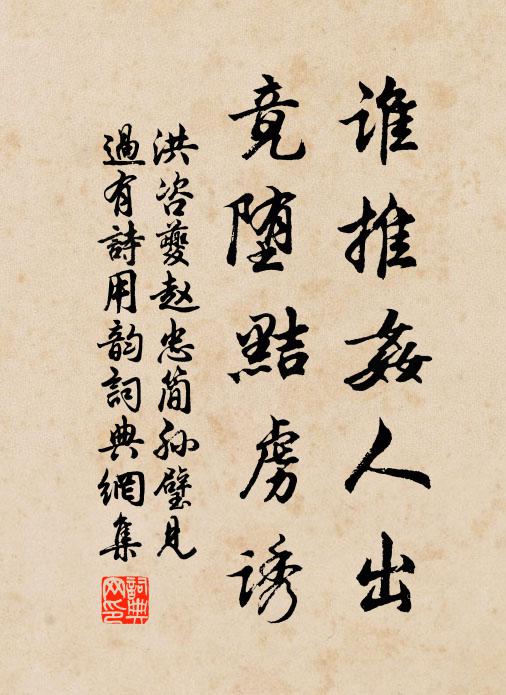 谁推姦人出
竟堕黠虏诱
洪咨夔赵忠简孙璧见
過有詩用韵詞典網集
詞典
网印